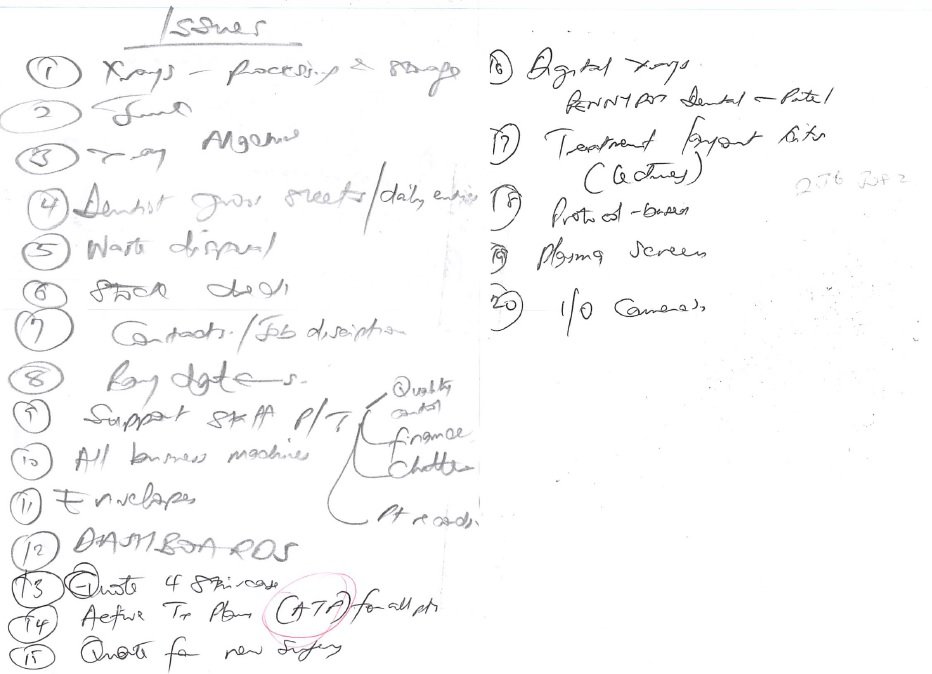 Issues
① Xrays – Processing & storage
②
③ X-ray Machine
④ Dentist gross sheets / daily entries
⑤ Waste disposal
⑥ Stock
⑦ Contracts / Job discription
⑧ Pay dates
⑨ Support staff P/T
Quality control
finance
Pt records
⑩ All business machines
⑪ Envelopes
⑫ DASHBOARDS
⑬ Quote 4 Staircase
⑭ Active Tx Plans (ATP) for all pts
⑮ Quote for new Surgery
⑯ Digital xrays
Dental – Patel
⑰ Treatment
(Lectures)
⑱ Protocol-based
⑲ Plasma screen
⑳ I/O Cameras